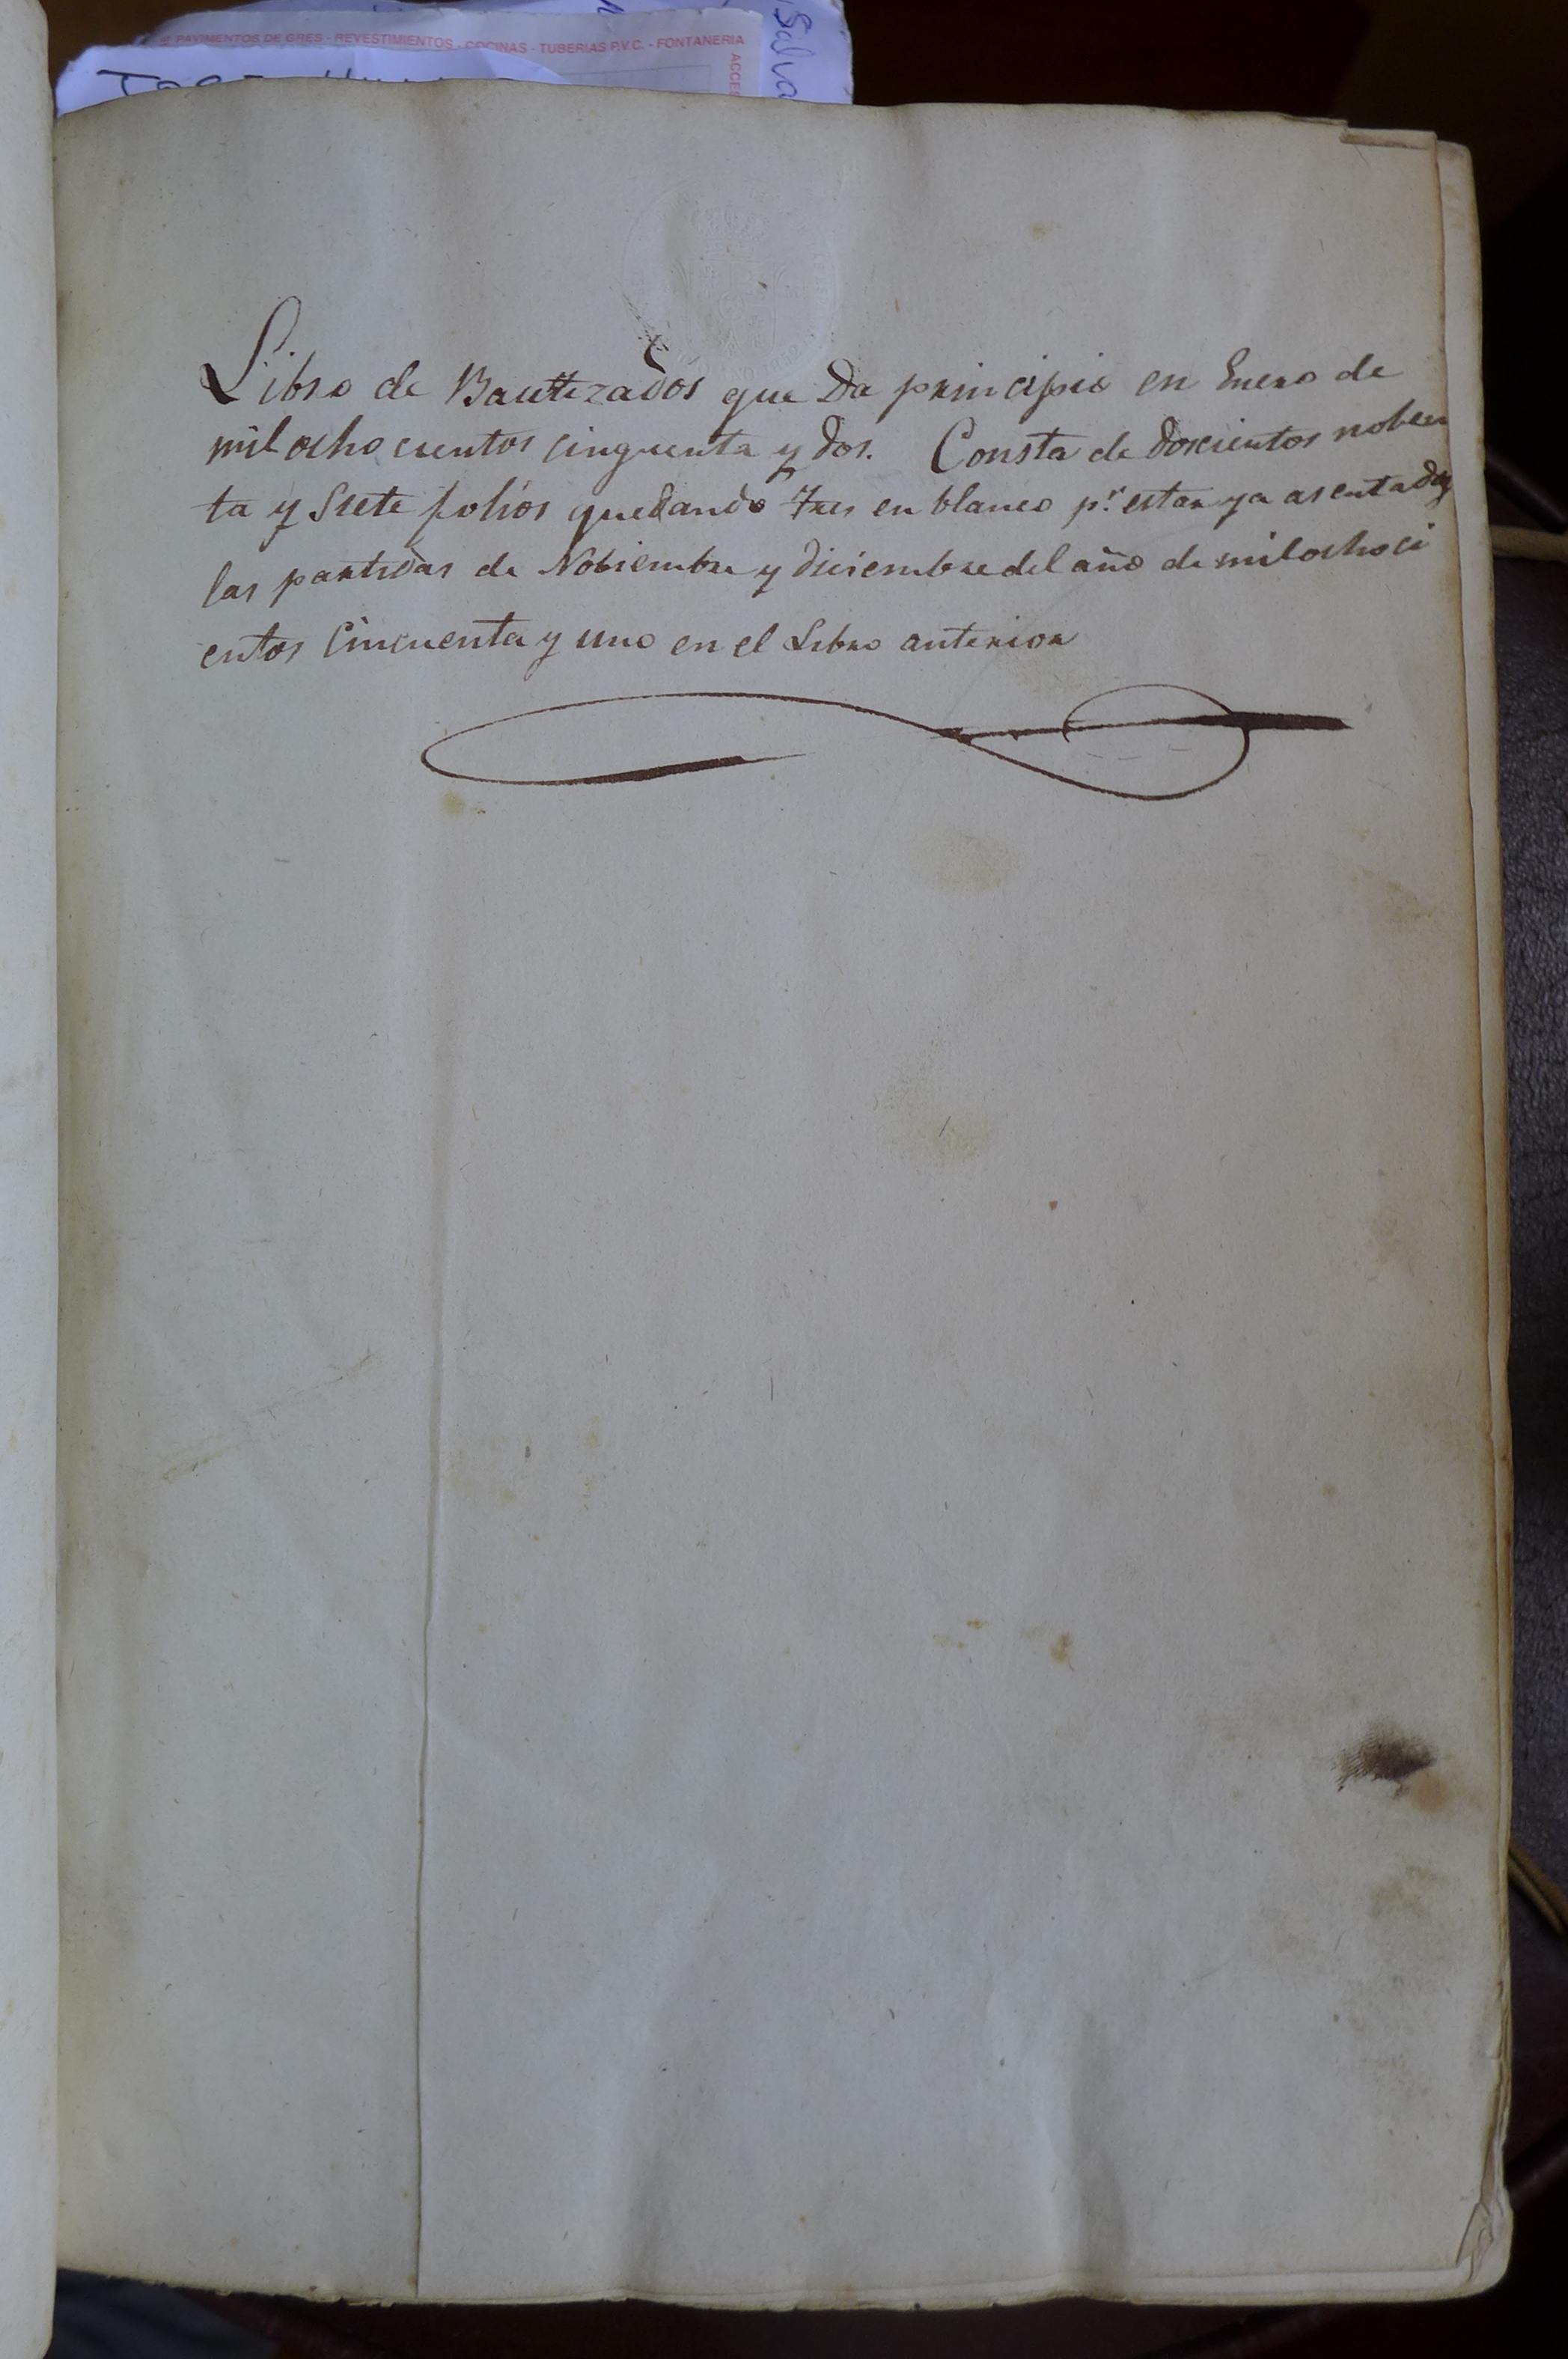 PAVIMENTOS DE GRES - REVESTIMIENTOS - COCINAS - TUBERIAS P.V.C. - FONTANERIA
ACCES
Salva
Libro de Bautizados que Da principio en Enero de
mil ocho cientos cinquenta y dos. Consta de doscientos noben
ta y Siete folios quedando tres en blanco pr. estar ya asentadas
las partidas de Nobiembre y diciembre del año de mil ochoci
entos cincuenta y uno en el Libro anterior